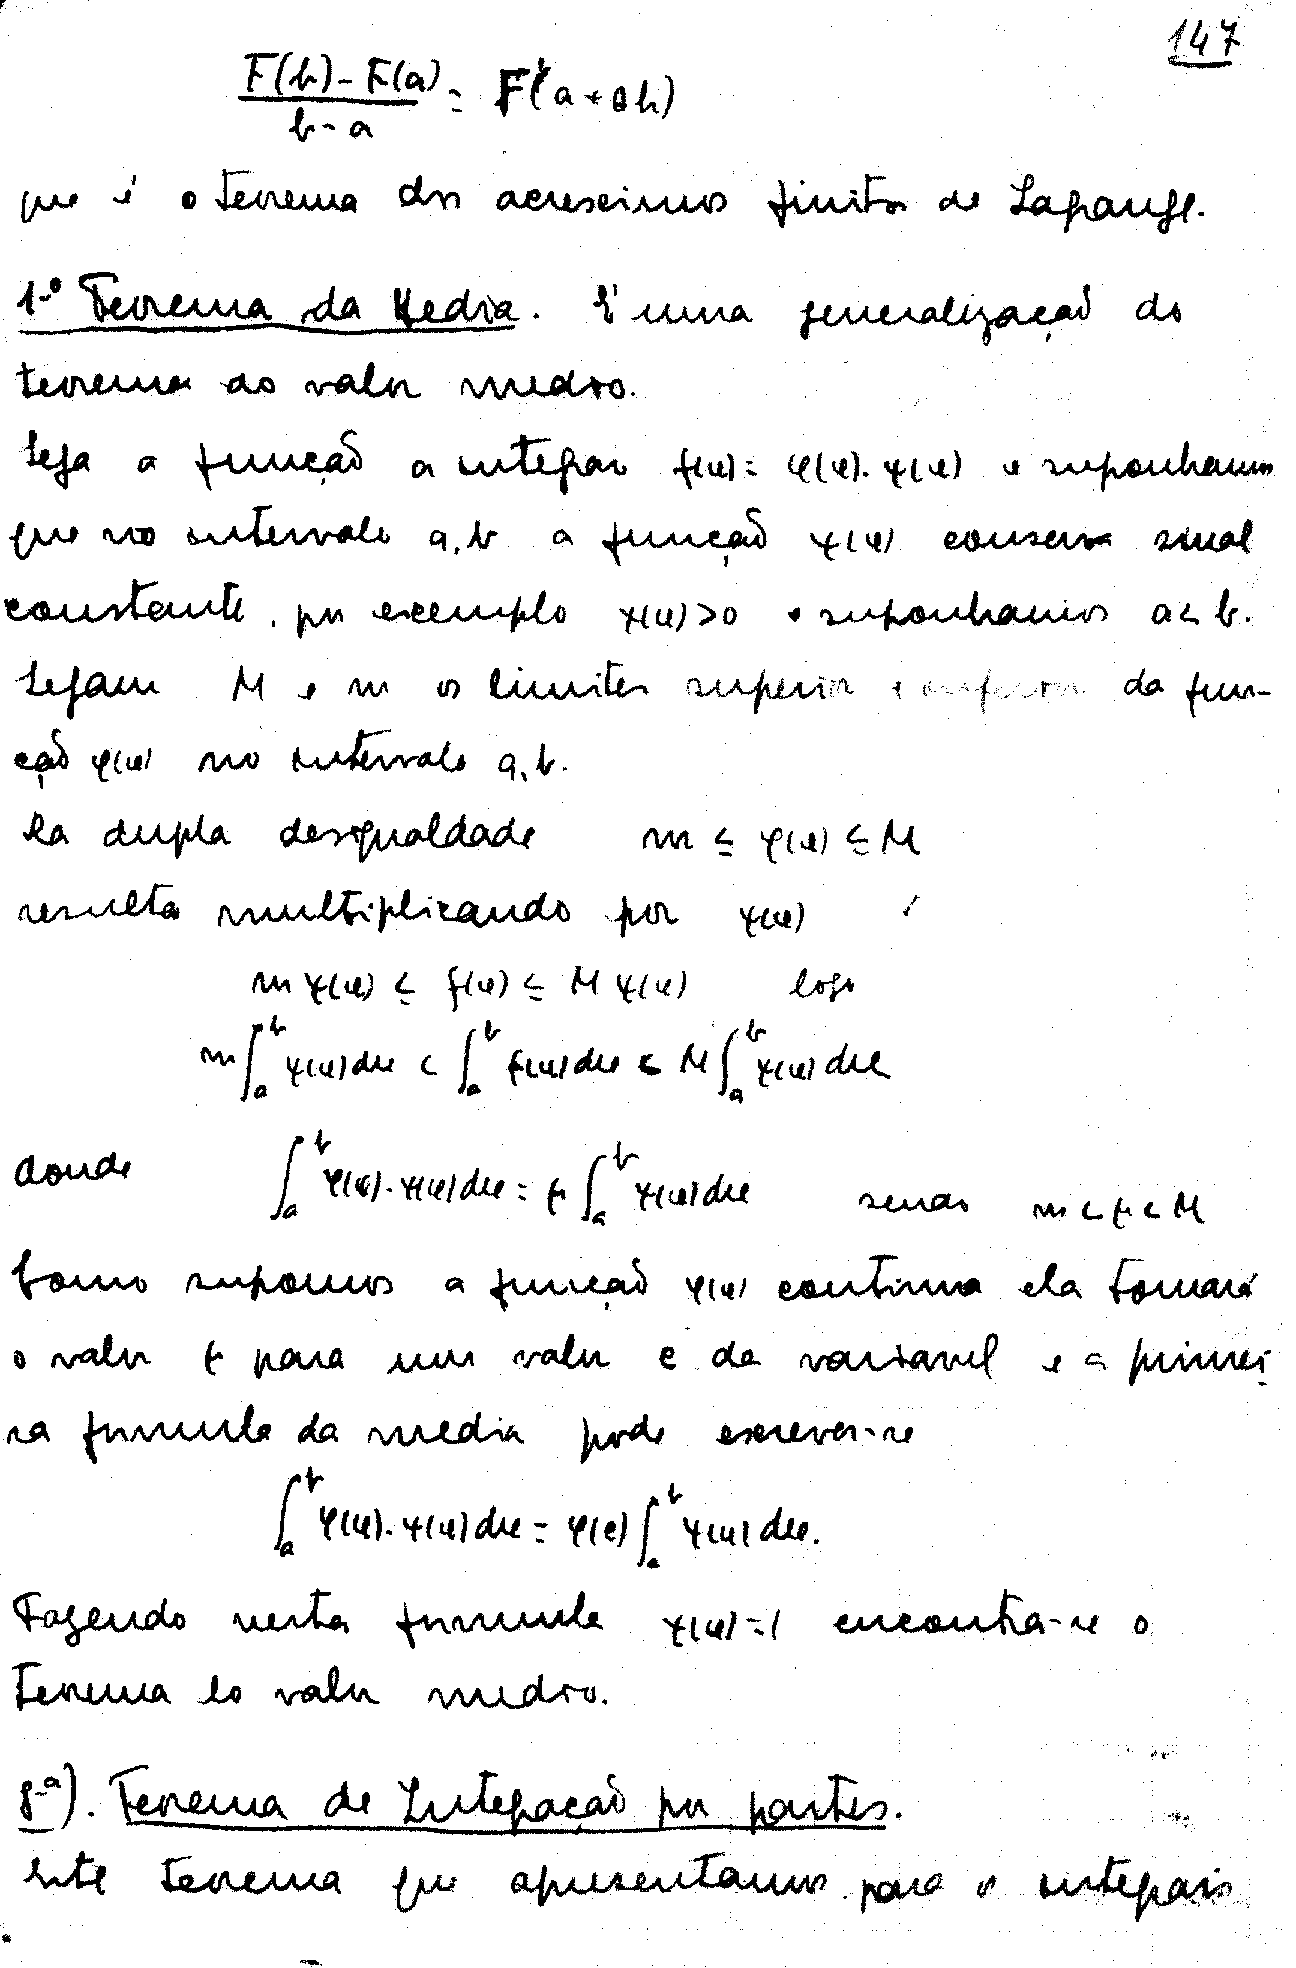 147
F(b) - F(a) / b - a = F'(a + θh)
que é o teorema dos acrescimos finitos de Lagrange.
1-º Teorema da Media. É uma generalização do
teorema do valor medio.
Seja a função a integrar f(x) = φ(x). ψ(x) e suponhamos
que no intervalo a, b a função ψ(x) conserva sinal
constante, por exemplo ψ(x) > 0 e suponhamos a < b.
Sejam M e m os limites superior e inferior da fun-
ção φ(x) no intervalo a, b.
Da dupla desigualdade m ≤ φ(x) ≤ M
resulta multiplicando por ψ(x)
m ψ(x) ≤ f(x) ≤ M ψ(x) logo
m ∫_a^b ψ(x) dx < ∫_a^b f(x) dx < M ∫_a^b ψ(x) dx
donde ∫_a^b φ(x). ψ(x) dx = μ ∫_a^b ψ(x) dx sendo m < μ < M
Como supomos a função φ(x) continua ela tomará
o valor μ para um valor c da variavel e a primei-
ra formula da media pode escrever-se
∫_a^b φ(x). ψ(x) dx = φ(c) ∫_a^b ψ(x) dx.
Fazendo nesta formula ψ(x) = 1 encontra-se o
teorema do valor medio.
8-ª). Teorema de Integração por partes.
Este teorema que apresentamos para os integrais